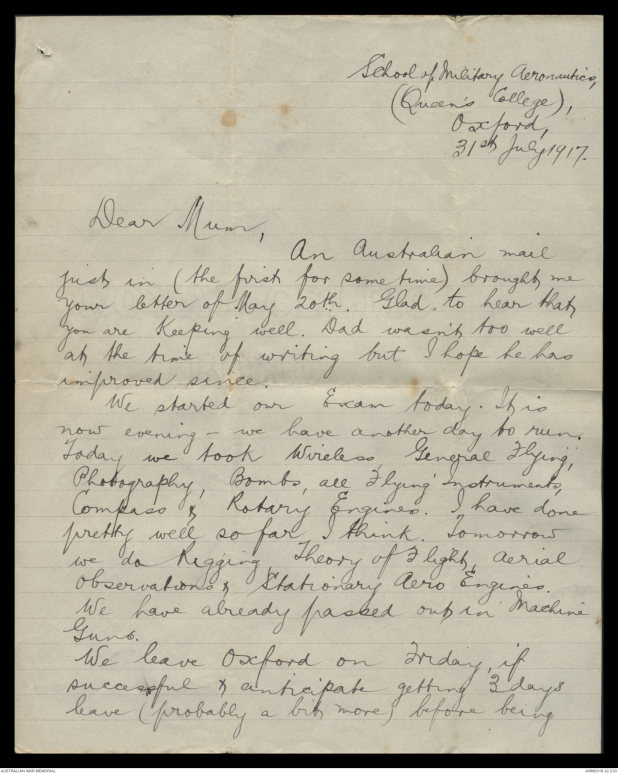 School of Military Aeronautics,
(Queen's College),
Oxford,
31st July 1917.
Dear Mum,
An Australian mail
just in (the first for some time) brought me
your letter of May 20th. Glad to hear that
you are keeping well. Dad wasn't too well
at the time of writing but I hope he has
improved since.
We started our Exam today. It is
now evening – we have another day to run.
Today we took Wireless, General Flying,
Photography, Bombs, all Flying Instruments,
Compass & Rotary Engines. I have done
pretty well so far I think. Tomorrow
we do Rigging, Theory of Flight, Aerial
Observations & Stationary Aero Engines.
We have already passed out in Machine
Guns.
We leave Oxford on Friday, if
successful & anticipate getting 3 days
leave (probably a bit more) before being
AUSTRALIAN WAR MEMORIAL